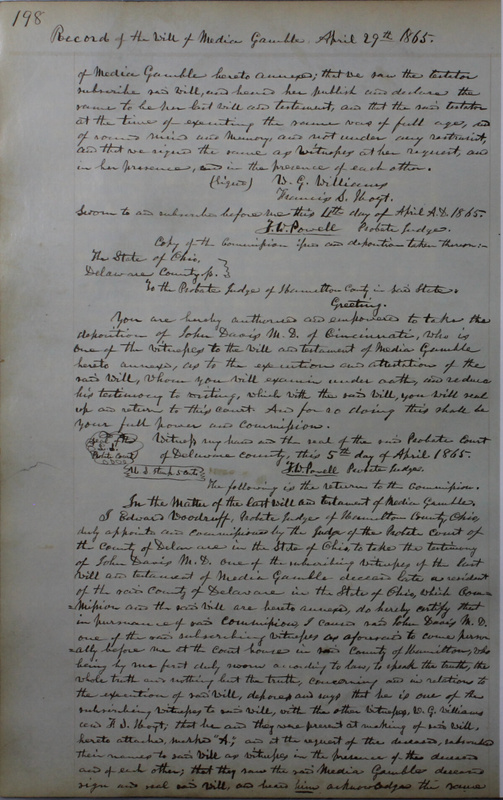 198
Record of the Will of Media Gamble April 29th 1865.
of Media Gamble hereto annexed; that we saw the testator
subscribe said Will, and heard her publish and declare the
same to be her last will and testament, and that the said testator
at the time of executing the same was of full age, and
of sound mind and memory, and not under any restraint,
and that we signed the same as witnesses at her request, and
in her presence, and in the presence of each other.
(Signed) W. G. Williams
Francis S. Hoyt.
Sworn to and subscribed before me this 4th day of April A.D. 1865.
F. W. Powell Probate Judge.
Copy of the Commission issued and deposition taken thereon:
The State of Ohio,
Delaware County, ss.
To the Probate Judge of Hamilton County in said State.
Greeting.
You are hereby authorised and empowered to take the
deposition of John Davis M. D. of Cincinnati, who is
one of the witnesses to the Will and testament of Media Gamble
hereto annexed, as to the execution and attestation of the
said Will, whom you will examine under oath, and reduce
his testimony to writing, which with the said Will, you will seal
up and return to this court. And for so doing this shall be
your full power and commission.
Witness my hand and the seal of the said Probate Court
of Delaware County, this 5th day of April 1865.
F. W. Powell Probate Judge.
The following is the return to the Commission.
In the Matter of the last Will and testament of Media Gamble.
I Edward Woodruff, Probate Judge of Hamilton County, Ohio,
duly appointed and commissioned by the Judge of the Probate Court of
the County of Delaware in the State of Ohio, to take the testimony
of John Davis M. D. one of the subscribing witnesses of the last
Will and testament of Media Gamble deceased late a resident
of the said County of Delaware in the State of Ohio, which Com=
=mission and the said Will are hereto annexed, do hereby certify that
in pursuance of said Commission, I caused said John Davis M. D.
one of the said subscribing witnesses as aforesaid to come person
=ally before me at the court house in said County of Hamilton, who
being by me first duly sworn according to law, to speak the truth, the
whole truth and nothing but the truth, concerning and in relation to
the execution of said Will, deposes and says that he is one of the
subscribing witnesses to said Will, with the other witnesses, W. G. Williams
and F. S. Hoyt; that he and they were present at making of said Will,
hereto attached, marked "A"; and at the request of the deceased, subscribed
their names to said Will as witnesses in the presence of the deceased
and of each other; that they saw the said Media Gamble deceased
sign and seal said Will, and heard him acknowledge the same